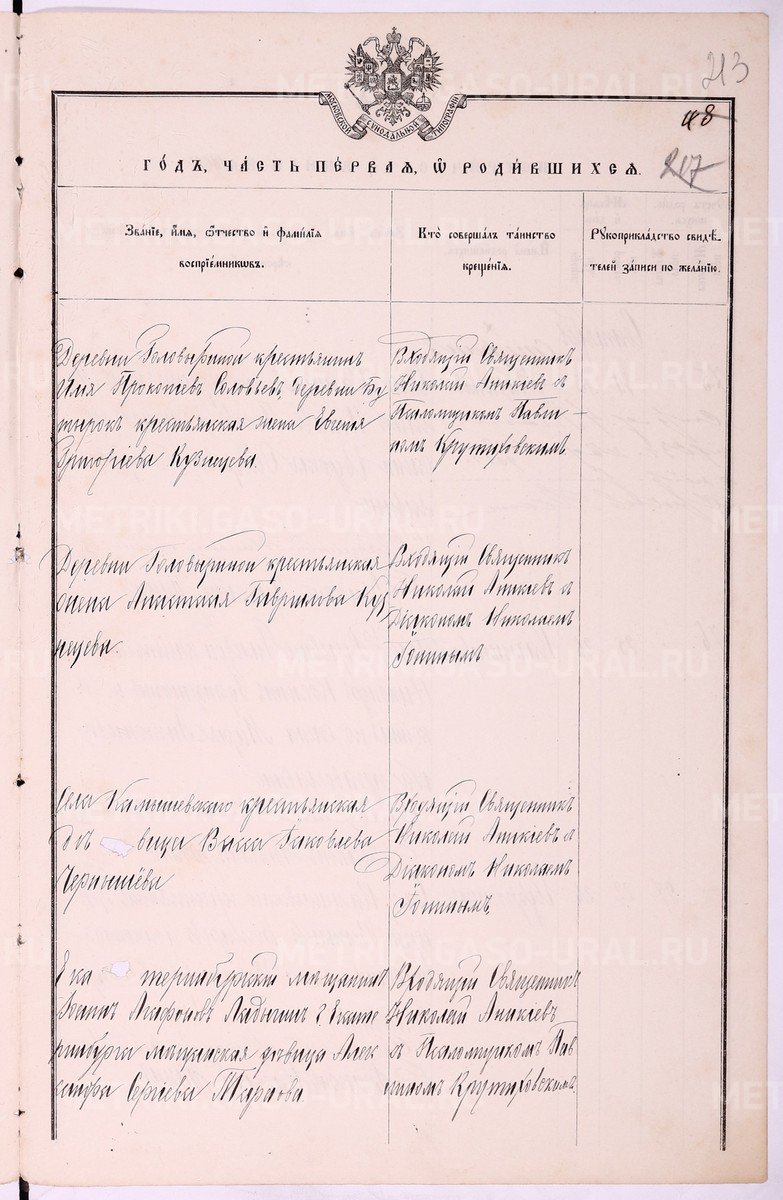 213
48
207
МОСКОВСКОЙ СѴНОДАЛЬНОЙ ТИПОГРАФІИ
ГОДЪ, ЧАСТЬ ПЕРВАЯ, Ѿ РОДИВШИХСЯ.
Званіе, имя, ѻтчество и фамилія
воспріемникѡвъ.
Кто совершалъ таинство
крещенія.
Рукоприкладство свидѣ-
телей записи по желанію.
Деревни Головыриной крестьянинъ
Илія Прокопіевъ Соловьевъ, деревни Бу
тырокъ крестьянская жена Евгенія
Григоріева Кузнецева
Входящій Священникъ
Николай Аникіевъ съ
Псаломщикомъ Павли-
номъ Крутиховскимъ
Деревни Головыриной крестьянская
жена Анастасія Гаврилова Куз
нецева.
Входящій Священникъ
Николай Аникіевъ съ
Діакономъ Николаемъ
Топинымъ
Села Камышевскаго крестьянская
дѣ вица Васса Іаковлева
Чернышёва
Входящій Священникъ
Николай Аникіевъ съ
Діакономъ Николаемъ
Топинымъ.
Ека теринбургскій мещанинъ
Іоаннъ Агафоновъ Ладыгинъ г. Екате
ринбурга мещанская девица Алек
сандра Сергіева Тарасова
Входящій Священникъ
Николай Аникіевъ
съ Псаломщикомъ Пав
линомъ Крутиховскимъ
METRIKI.CASO-URAL.RU